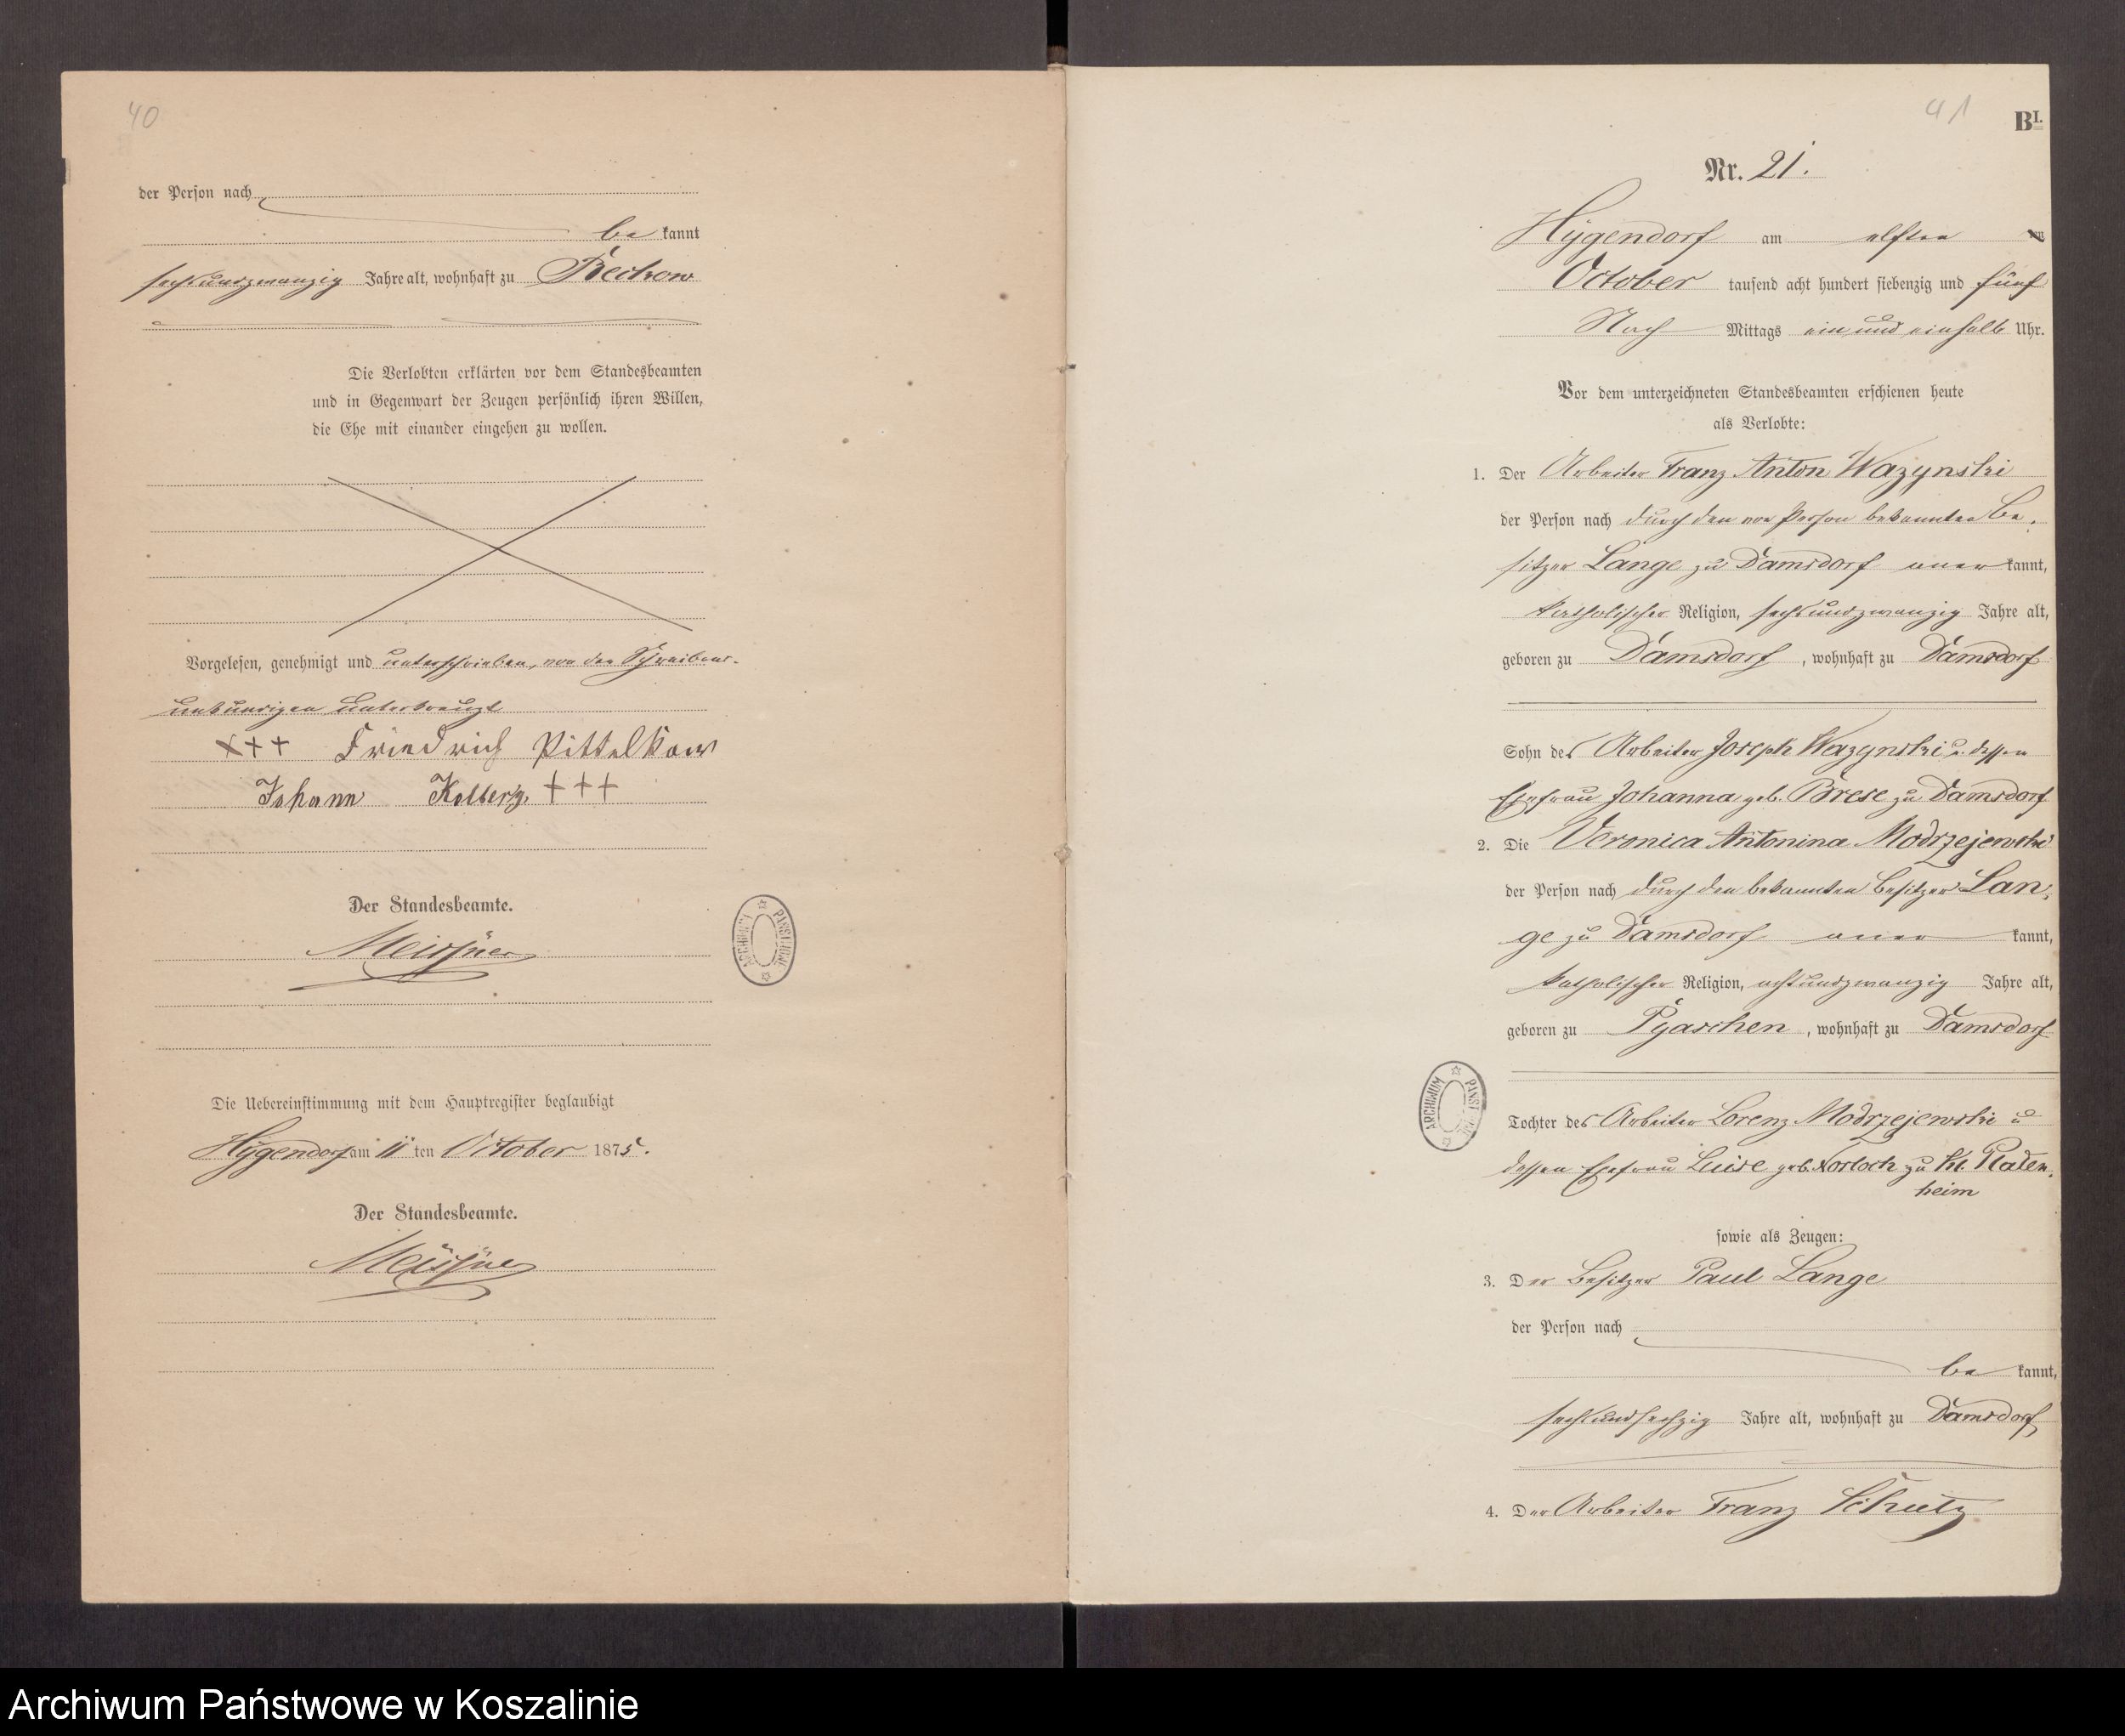 40
der Person nach
be kannt
sechsundzwanzig Jahre alt, wohnhaft zu Bechow
Die Verlobten erklärten vor dem Standesbeamten
und in Gegenwart der Zeugen persönlich ihren Willen,
die Ehe mit einander eingehen zu wollen.
Vorgelesen, genehmigt und unterschrieben, von den Schreibens-
unkundigen unterkreuzt
+++ Friedrich Pittelkow
Johann Kolberg. +++
Der Standesbeamte.
Meissner
ARCHIWUM PAŃSTWOWE
Die Uebereinstimmung mit dem Hauptregister beglaubigt
Hygendorf am 11 ten October 1875.
Der Standesbeamte.
Meissner
41
BI.
Nr. 21.
Hygendorf am elften ten
October tausend acht hundert siebenzig und fünf
Nach Mittags ein und einhalb Uhr.
Vor dem unterzeichneten Standesbeamten erschienen heute
als Verlobte:
1. Der Arbeiter Franz Anton Wazynski
der Person nach durch den von Person bekannten Be-
sitzer Lange zu Damsdorf aner kannt,
katholischer Religion, sechsundzwanzig Jahre alt,
geboren zu Damsdorf, wohnhaft zu Damsdorf
Sohn des Arbeiter Joseph Wazynski u. dessen
Ehefrau Johanna geb. Brese zu Damsdorf
2. Die Veronica Antonina Modrzejewski
der Person nach durch den bekannten Besitzer Lan-
ge zu Damsdorf aner kannt,
katholischer Religion, achtundzwanzig Jahre alt,
geboren zu Pyaschen, wohnhaft zu Damsdorf
ARCHIWUM PAŃSTWOWE
Tochter des Arbeiter Lorenz Modrzejewski u
dessen Ehefrau Luise geb. Norloch zu Kl. Platen-
heim
sowie als Zeugen:
3. Der Besitzer Paul Lange
der Person nach
be kannt,
sechsundsechzig Jahre alt, wohnhaft zu Damsdorf
4. Der Arbeiter Franz Schutz
Archiwum Państwowe w Koszalinie